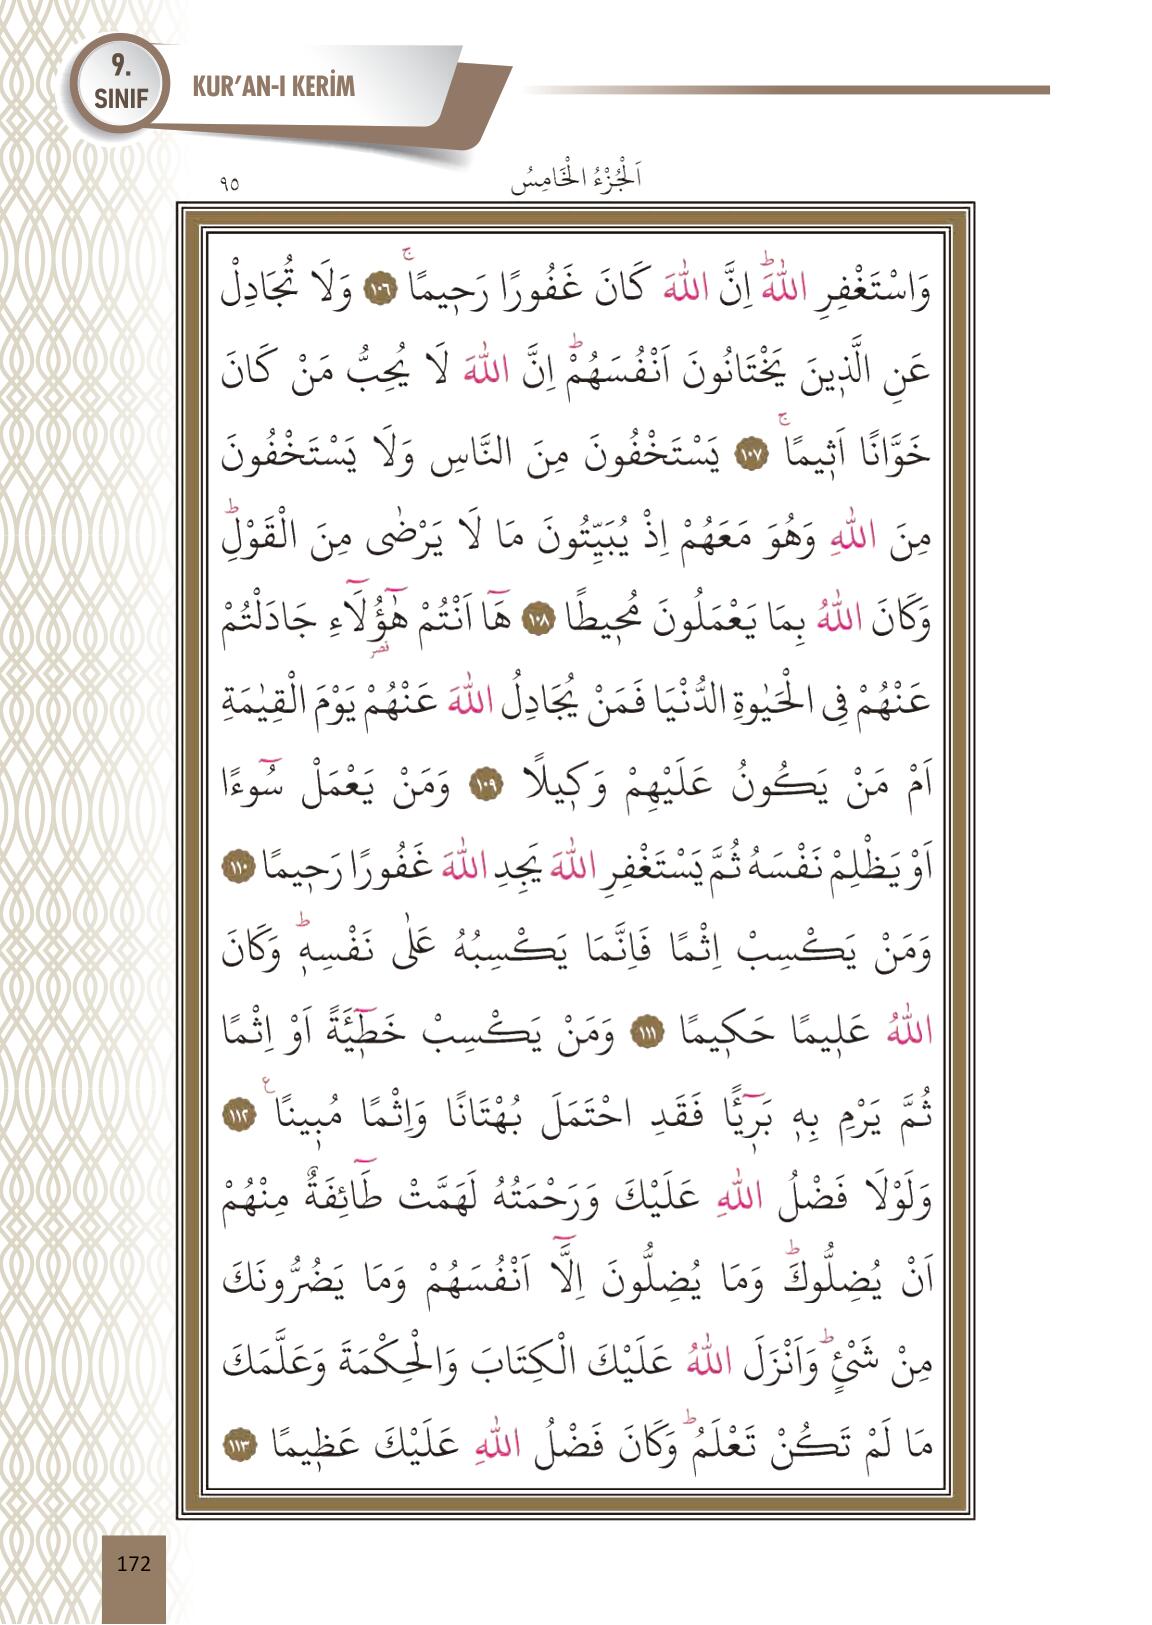 9.
SINIF
KUR'AN-I KERİM
اَلْجُزْءُ الْخَامِسُ
٩٥
وَاسْتَغْفِرِ اللّٰهَۜ اِنَّ اللّٰهَ كَانَ غَفُورًا رَح۪يمًاۚ ﴿١٠٦﴾ وَلَا تُجَادِلْ
عَنِ الَّذ۪ينَ يَخْتَانُونَ اَنْفُسَهُمْۜ اِنَّ اللّٰهَ لَا يُحِبُّ مَنْ كَانَ
خَوَّانًا اَث۪يمًاۚ ﴿١٠٧﴾ يَسْتَخْفُونَ مِنَ النَّاسِ وَلَا يَسْتَخْفُونَ
مِنَ اللّٰهِ وَهُوَ مَعَهُمْ اِذْ يُبَيِّتُونَ مَا لَا يَرْضٰى مِنَ الْقَوْلِۜ
وَكَانَ اللّٰهُ بِمَا يَعْمَلُونَ مُح۪يطًا ﴿١٠٨﴾ هَٓا اَنْتُمْ هٰٓؤُ۬لَٓاءِ جَادَلْتُمْ
عَنْهُمْ فِى الْحَيٰوةِ الدُّنْيَا فَمَنْ يُجَادِلُ اللّٰهَ عَنْهُمْ يَوْمَ الْقِيٰمَةِ
اَمْ مَنْ يَكُونُ عَلَيْهِمْ وَك۪يلًا ﴿١٠٩﴾ وَمَنْ يَعْمَلْ سُٓوءًا
اَوْ يَظْلِمْ نَفْسَهُ ثُمَّ يَسْتَغْفِرِ اللّٰهَ يَجِدِ اللّٰهَ غَفُورًا رَح۪يمًا ﴿١١٠﴾
وَمَنْ يَكْسِبْ اِثْمًا فَاِنَّمَا يَكْسِبُهُ عَلٰى نَفْسِه۪ۜ وَكَانَ
اللّٰهُ عَل۪يمًا حَك۪يمًا ﴿١١١﴾ وَمَنْ يَكْسِبْ خَط۪ٓيـَٔةً اَوْ اِثْمًا
ثُمَّ يَرْمِ بِه۪ بَر۪ٓيـًٔا فَقَدِ احْتَمَلَ بُهْتَانًا وَاِثْمًا مُب۪ينًا ع ﴿١١٢﴾
وَلَوْلَا فَضْلُ اللّٰهِ عَلَيْكَ وَرَحْمَتُهُ لَهَمَّتْ طَٓائِفَةٌ مِنْهُمْ
اَنْ يُضِلُّوكَۜ وَمَا يُضِلُّونَ اِلَّٓا اَنْفُسَهُمْ وَمَا يَضُرُّونَكَ
مِنْ شَيْءٍۜ وَاَنْزَلَ اللّٰهُ عَلَيْكَ الْكِتَابَ وَالْحِكْمَةَ وَعَلَّمَكَ
مَا لَمْ تَكُنْ تَعْلَمُۜ وَكَانَ فَضْلُ اللّٰهِ عَلَيْكَ عَظ۪يمًا ﴿١١٣﴾
172